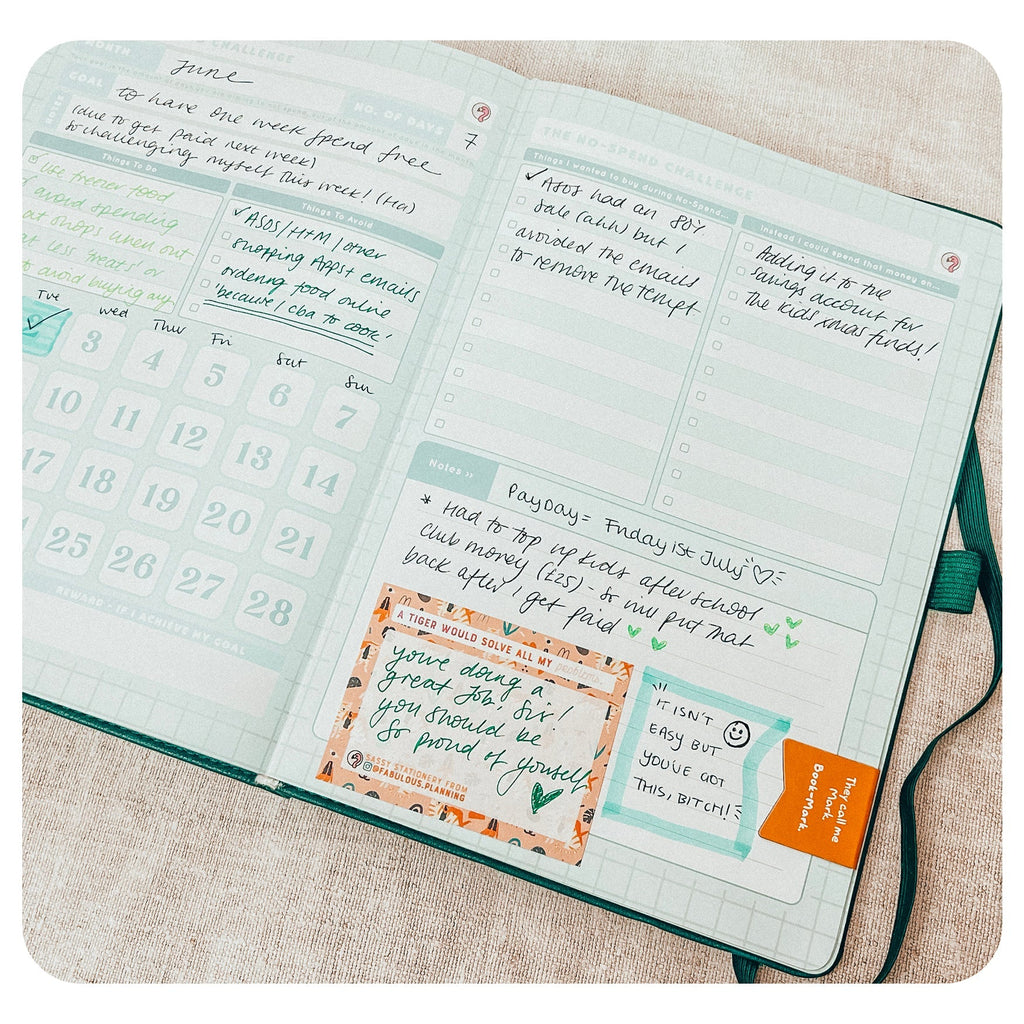 MONTH
CHALLENGE
June
GOAL
NO. OF DAYS
7
to have one week spend free
(due to get paid next week)
so challenging myself this week! (Ha)
Things To Do
Use freezer food
avoid spending
at shops when out
eat less 'treats' or
to avoid buying any
Things To Avoid
ASOS/H+M/other
shopping Apps + emails
ordering food online
'because I cba to cook!'
Tue Wed Thur Fri Sat Sun
2 3 4 5 6 7
10 11 12 13 14
17 18 19 20 21
25 26 27 28
REWARD - IF I ACHIEVE MY GOAL
THE NO-SPEND CHALLENGE
Things I wanted to buy during No-Spend...
ASOS had an 80%
sale (ahh) but I
avoided the emails
to remove the tempt
Instead I could spend that money on...
Adding it to the
savings account for
the kids xmas funds!
Notes >>
PayDay = Friday 1st July
* Had to top up kids after school
club money (£25) - so will put that
back after I get paid
A TIGER WOULD SOLVE ALL MY problems
you're doing a
great job, Siv!
you should be
so proud of yourself
SASSY STATIONERY FROM
@FABULOUS.PLANNING
IT ISN'T
EASY BUT
YOU'VE GOT
THIS, BITCH!
They call me
Mark.
Book-Mark.